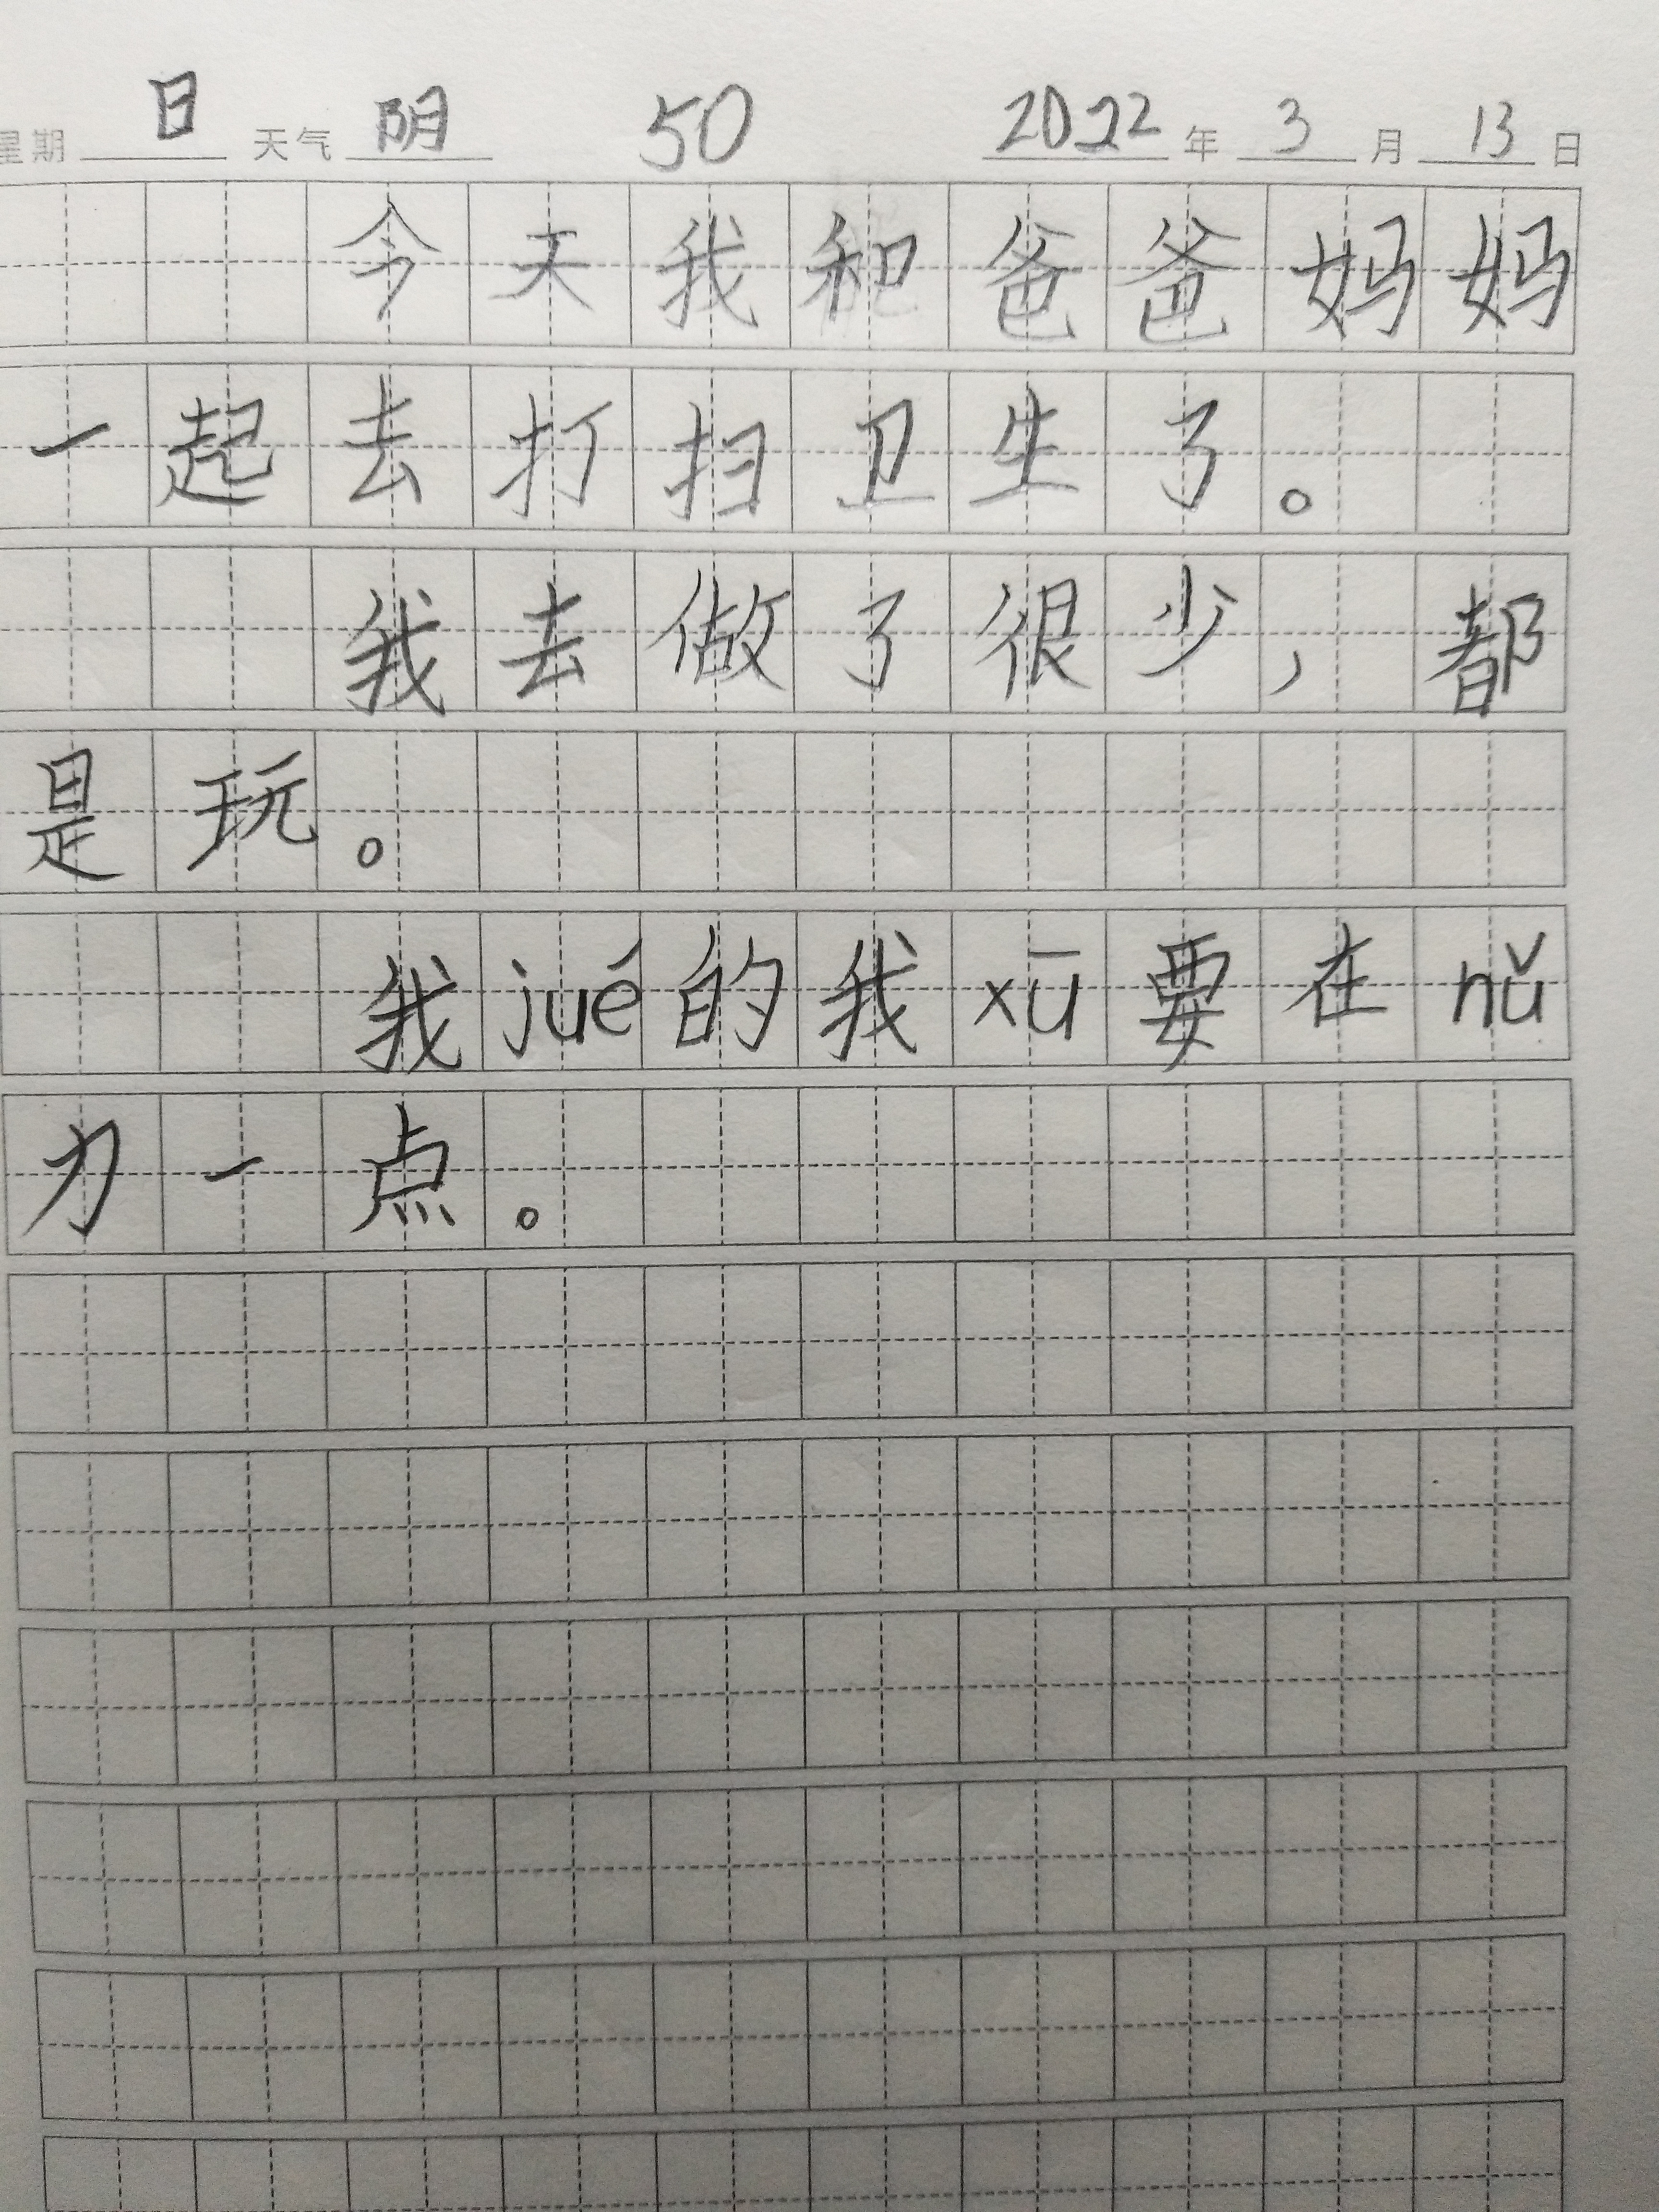 星期 日 天气 阴 50 2022 年 3 月 13 日
今天我和爸爸妈妈
一起去打扫卫生了。
我去做了很少，都
是玩。
我jué的我xū要在nǔ
力一点。